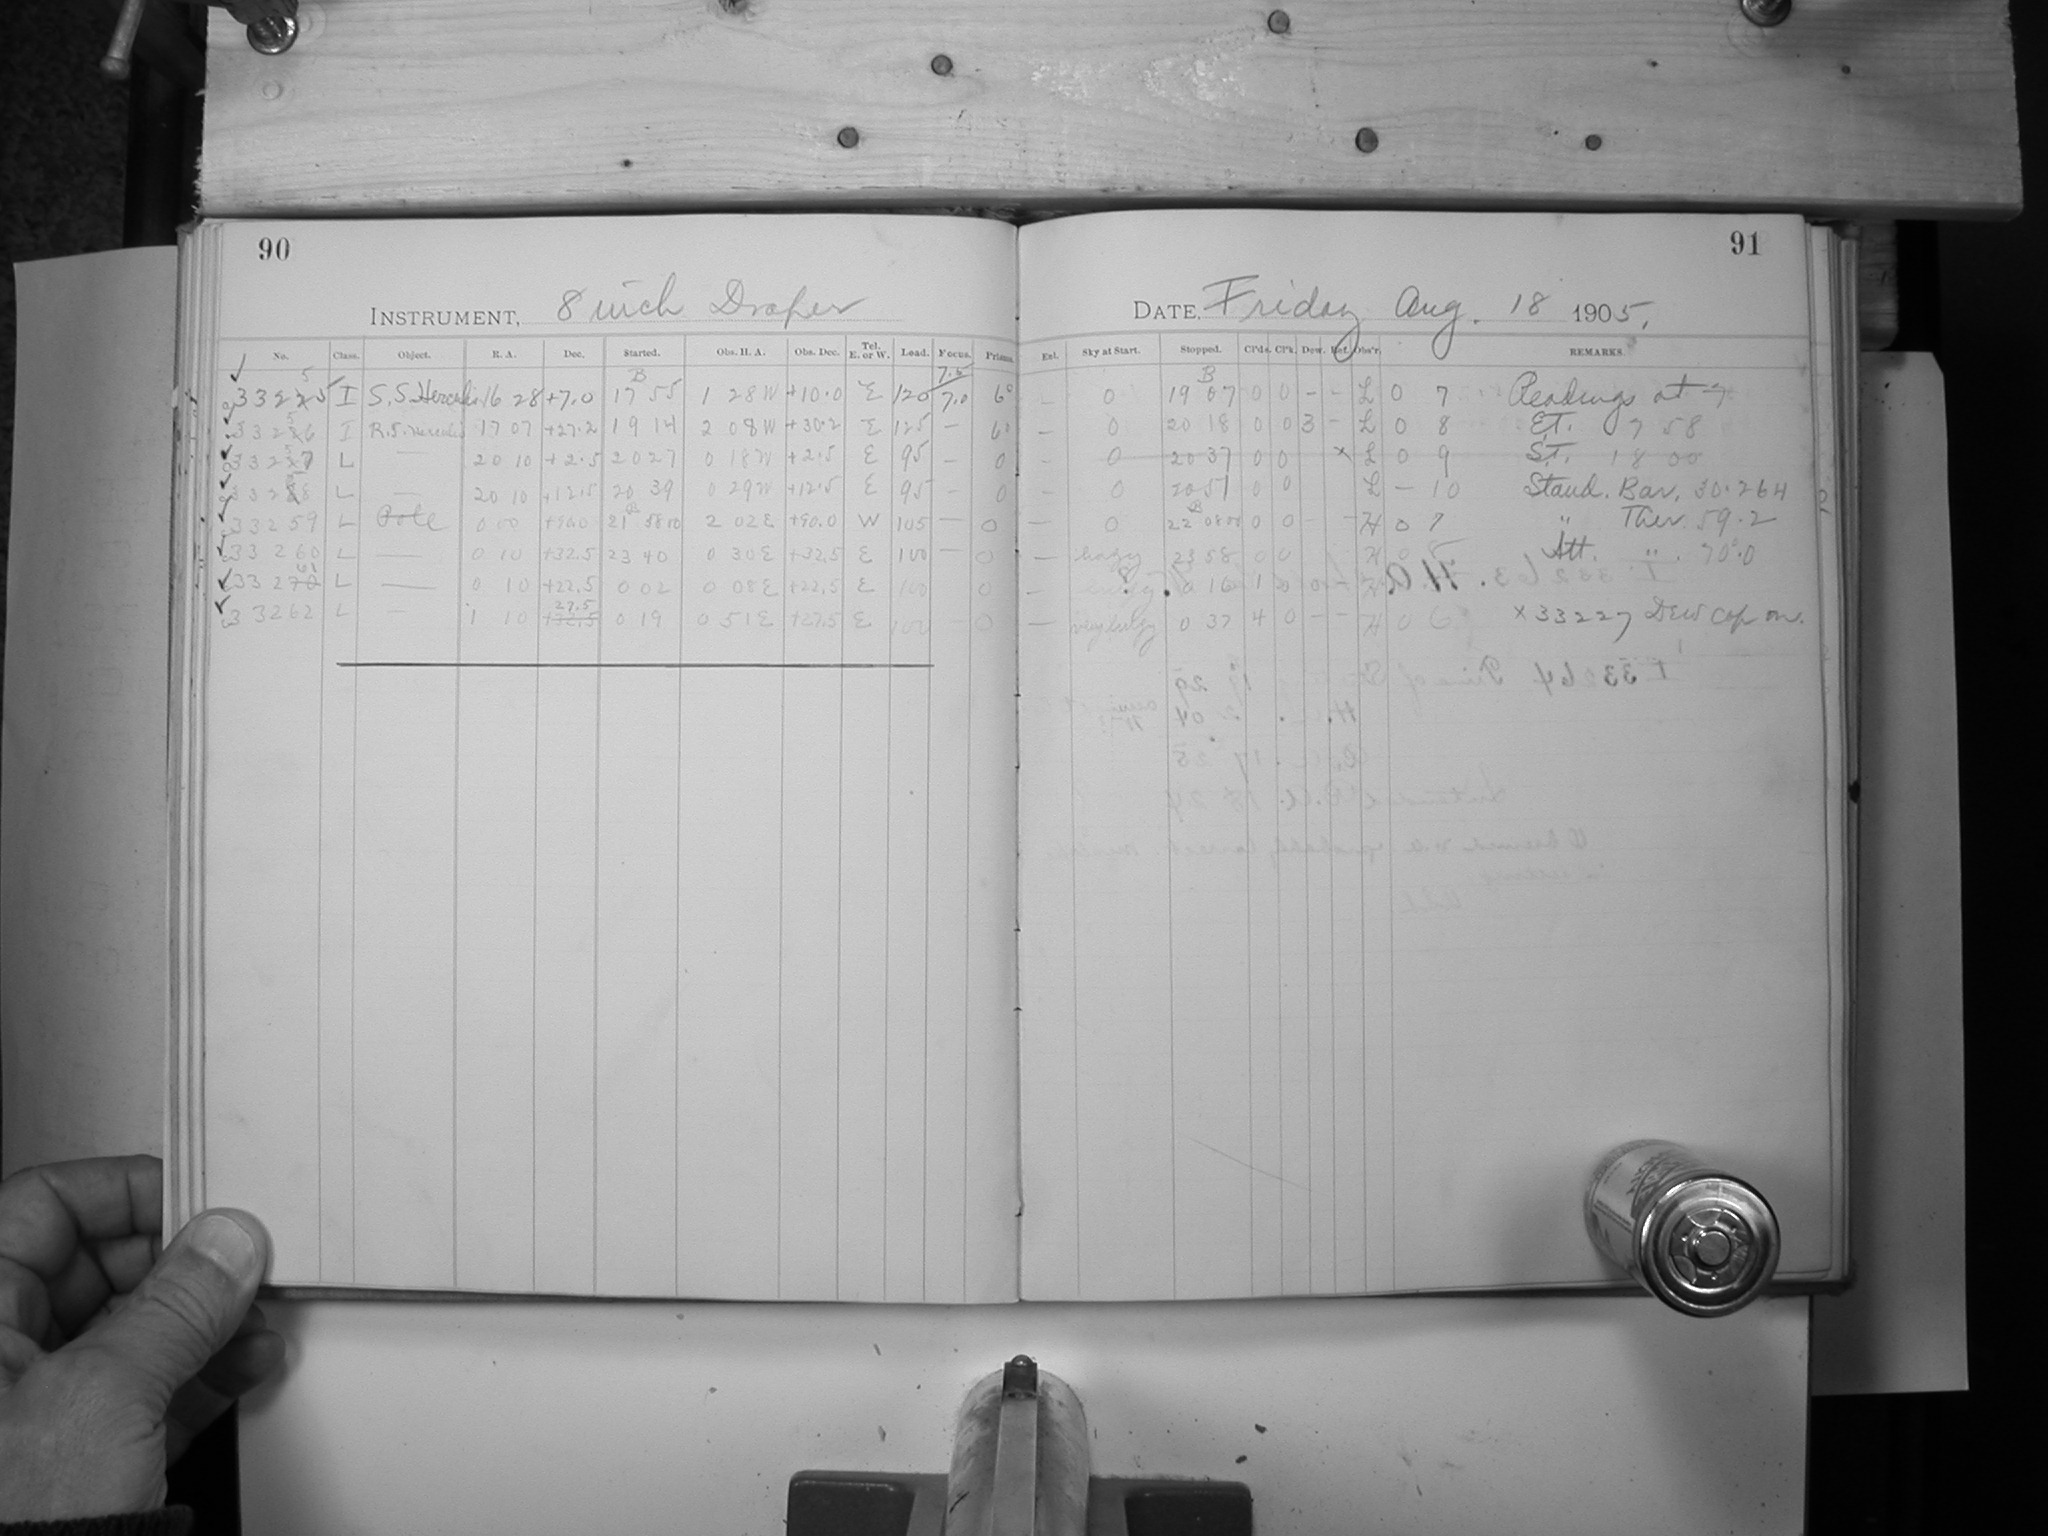 90
91
INSTRUMENT, 8 inch Draper
DATE, Friday Aug. 18 1905,
No. Class. Object. R. A. Dec. Started. Obs. H. A. Obs. Dec. Tel. E. or W. Lead. Focus. Prisms. Enl. Sky at Start. Stopped. Cl'ds. Cl'k. Dew. Ref. Obs'r. REMARKS.
33225 5 I S.S. Herculis 16 28 +7.0 B 17 55 1 28 W +10.0 E 120 7.5 7.0 6° – 0 B 19 07 0 0 – – L 0 7 Readings at 7
33226 5 I R.S. Herculis 17 07 +27.2 19 14 2 08 W +30.2 E 125 – 6° – 0 20 18 0 0 3 – L 0 8 E.T. 7 58
33227 5 L — 20 10 +2.5 20 27 0 18 W +2.5 E 95 – 0 – 0 20 37 0 0 x L 0 9 S.T. 18 00
33228 5 L — 20 10 +12.5 20 39 0 29 W +12.5 E 95 – 0 0 20 51 0 0 L – 10 Stand. Bar, 30.264
33259 L Pole 0 00 +90.0 B 21 58 00 2 02 E +90.0 W 105 — 0 — 0 B 22 08 00 0 0 – – H 0 7 " Ther. 59.2
33260 L — 0 10 +32.5 23 40 0 30 E +32.5 E 100 — 0 — hazy 23 58 0 0 H 0 5 Att. " 70.0
33270 61 L — 0 10 +22.5 0 02 0 08 E +22.5 E 100 0 – 0 16 1 H
33262 L – 1 10 27.5 +32.5 0 19 0 51 E +27.5 E 100 – 0 — very hazy 0 37 4 0 – – H 0 6 x 33227 Dew cap on.